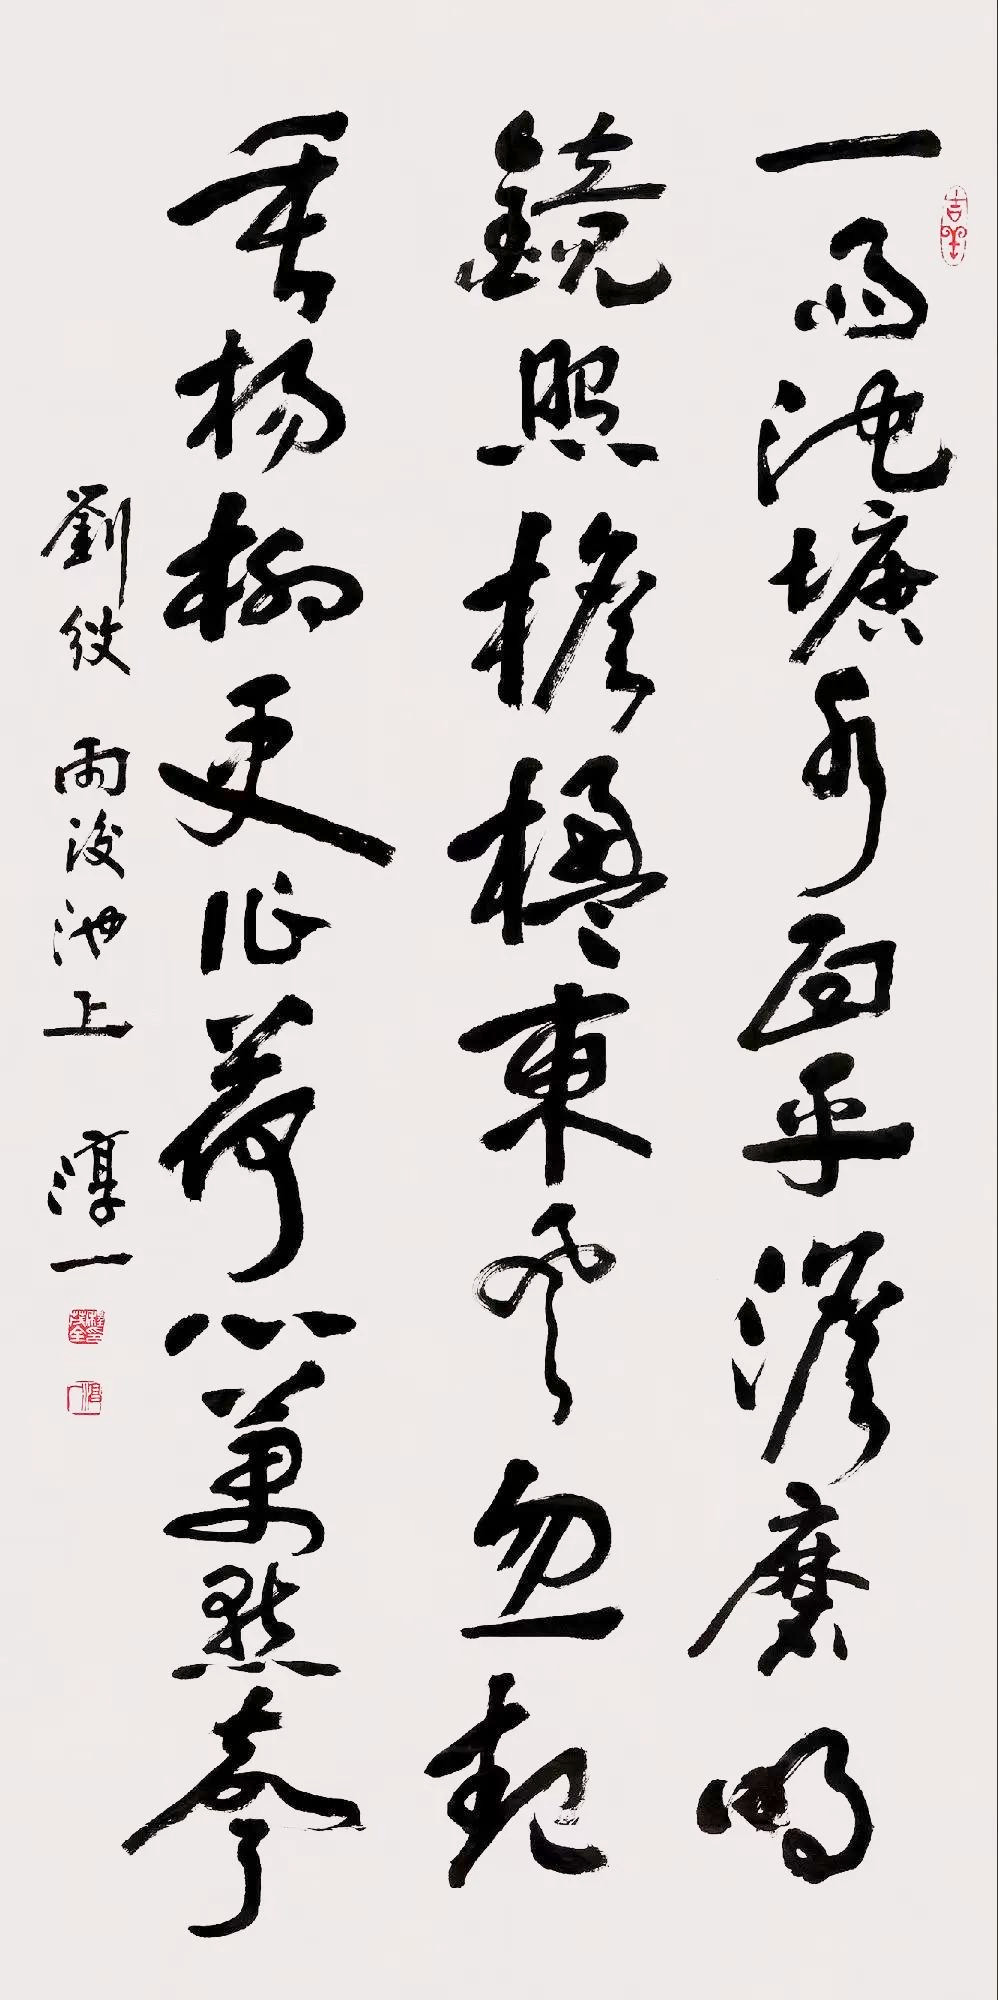 一雨池塘水面平澹磨明
鏡照檐楹東風忽起
垂楊柳更作荷心萬點聲
劉攽 雨後池上 淳一
吉羊